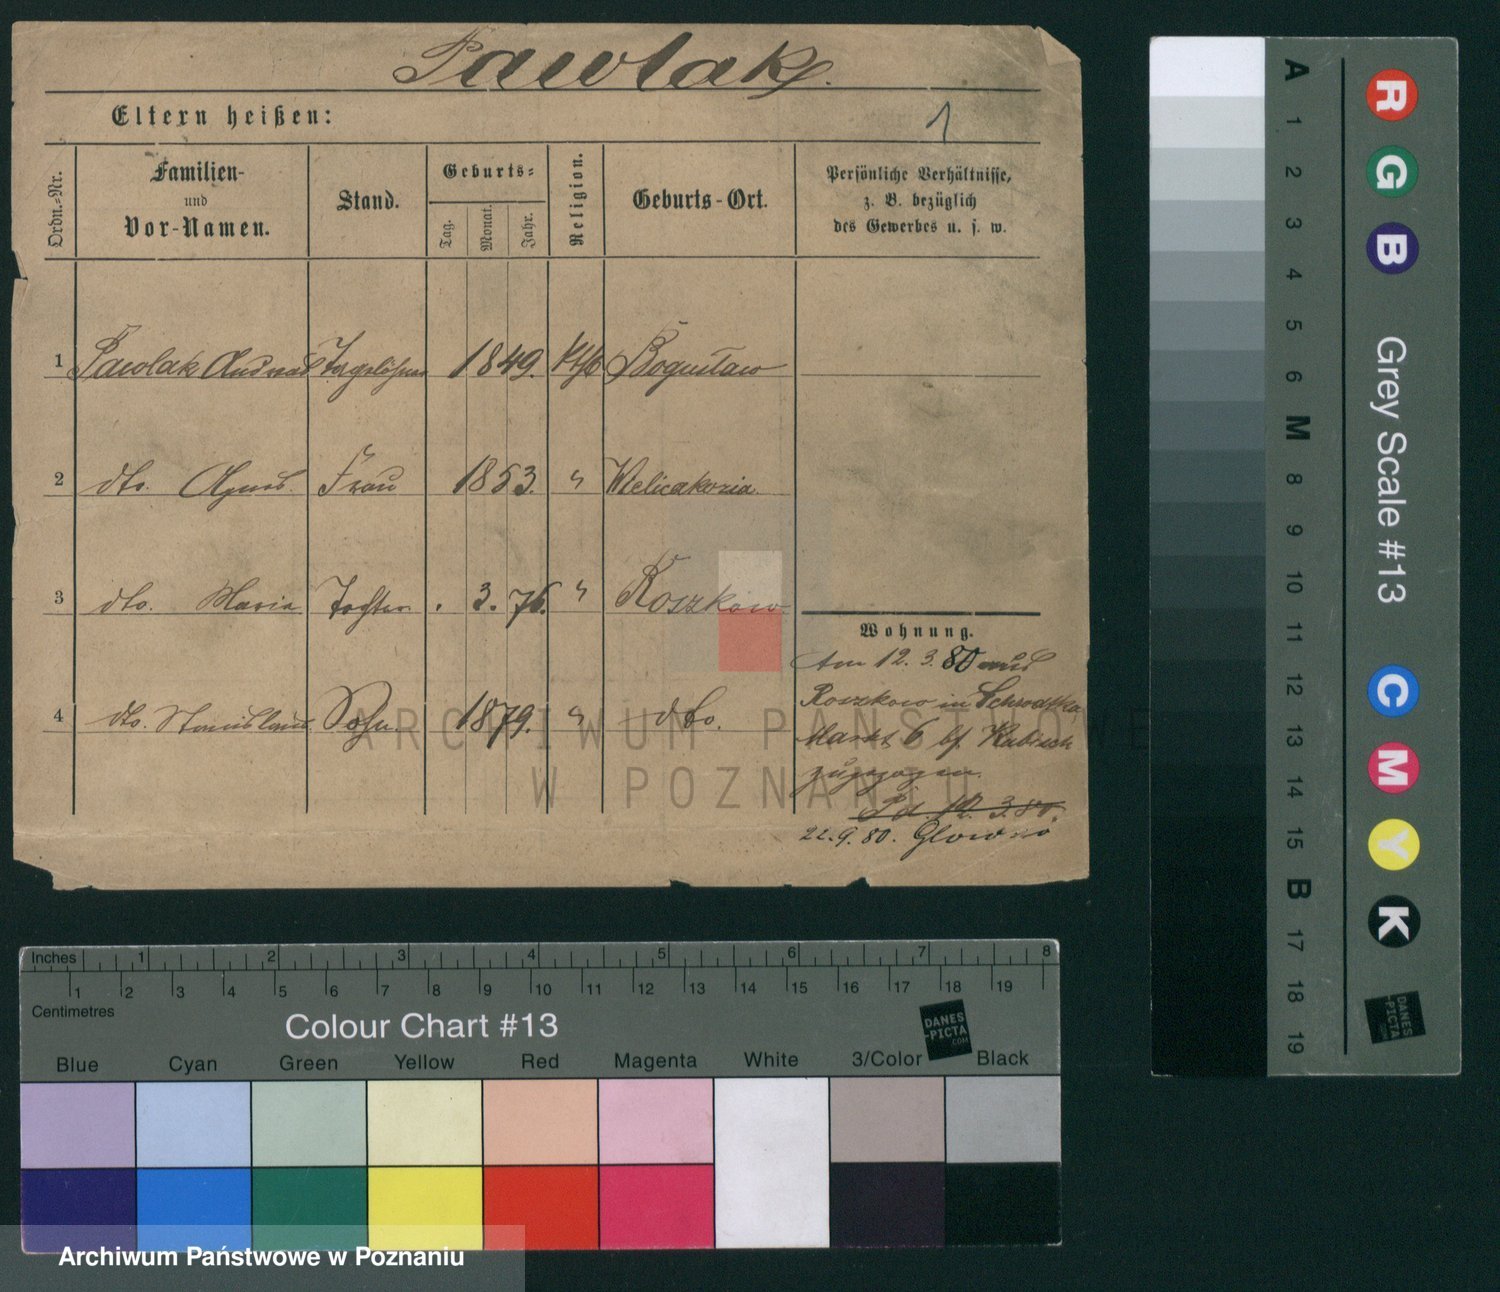 Pawlak.
Eltern heißen:
1
Ordn.-Nr.
Familien-
und
Vor-Namen.
Stand.
Geburts-
Tag.
Monat.
Jahr.
Religion.
Geburts-Ort.
Persönliche Verhältnisse,
z. B. bezüglich
des Gewerbes u. s. w.
1 Pawlak Andreas Tagelöhner 1849. kth Boguslaw
2 dto. Agnes. Frau 1853. "
3 dto. Maria Tochter . 3. 76. " Roszkowo
4 dto. Stanislaus Sohn. 1879. " dto.
Wohnung.
Am 12. 3. 80 aus
Roszkowo in Schrodka
Markt 6 bf. Kubiack
zugezogen.
Pd. 12. 3. 80.
22. 9. 80. Glowno
ARCHIWUM PAŃSTWOWE
W POZNANIU
Inches 1 2 3 4 5 6 7 8
1 2 3 4 5 6 7 8 9 10 11 12 13 14 15 16 17 18 19
Centimetres
Colour Chart #13
DANES
-PICTA
.COM
Blue Cyan Green Yellow Red Magenta White 3/Color Black
Archiwum Państwowe w Poznaniu
R G B Grey Scale #13 C M Y K
A 1 2 3 4 5 6 M 8 9 10 11 12 13 14 15 B 17 18 19
DANES
-PICTA
.COM